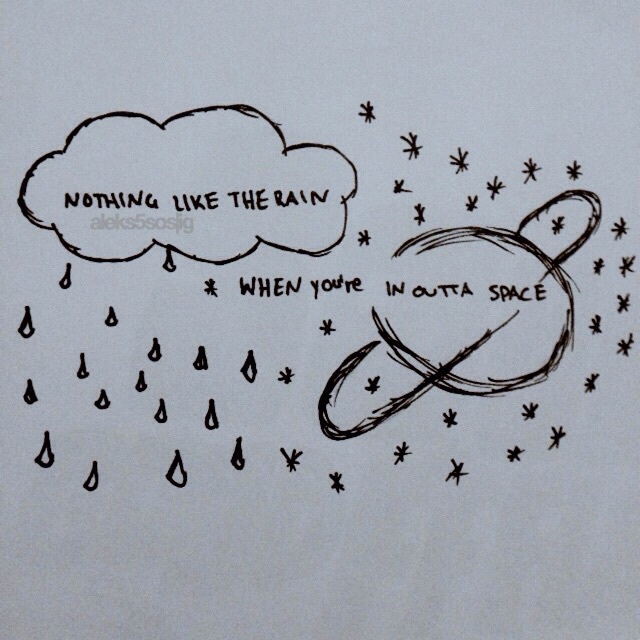 NOTHING LIKE THE RAIN
aleks5sosljg
WHEN YOU'RE IN OUTTA SPACE